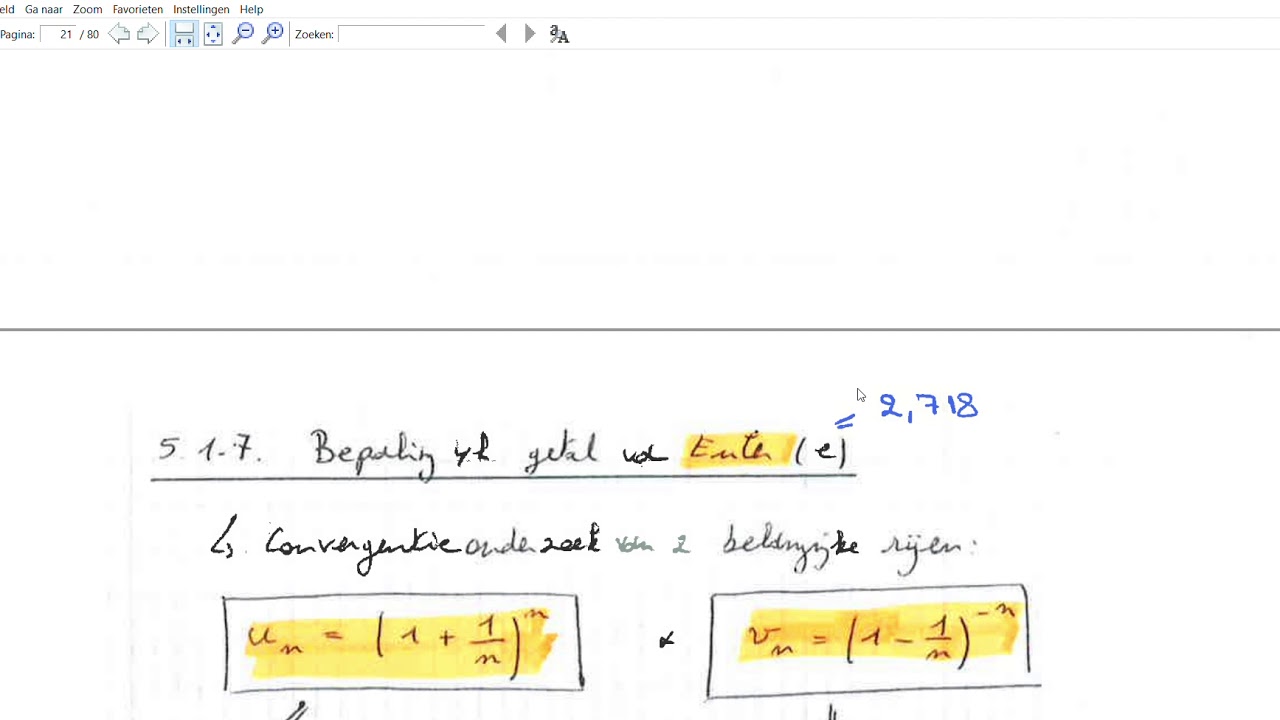 eld Ga naar Zoom Favorieten Instellingen Help
Pagina: 21 / 80 Zoeken:
= 2,718
5.1.7. Bepaling vh getal van Euler (e)
↳ Convergentie onderzoek van 2 belangrijke rijen:
u_n = (1 + 1/n)^n & v_n = (1 - 1/n)^-n